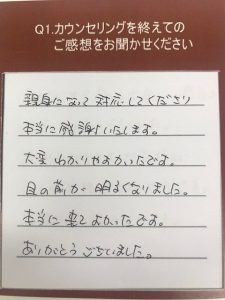 Q1.カウンセリングを終えての
ご感想をお聞かせください
親身になって対応してくださり
本当に感謝いたします。
大変わかりやすかったです。
目の前が明るくなりました。
本当に来てよかったです。
ありがとうございました。